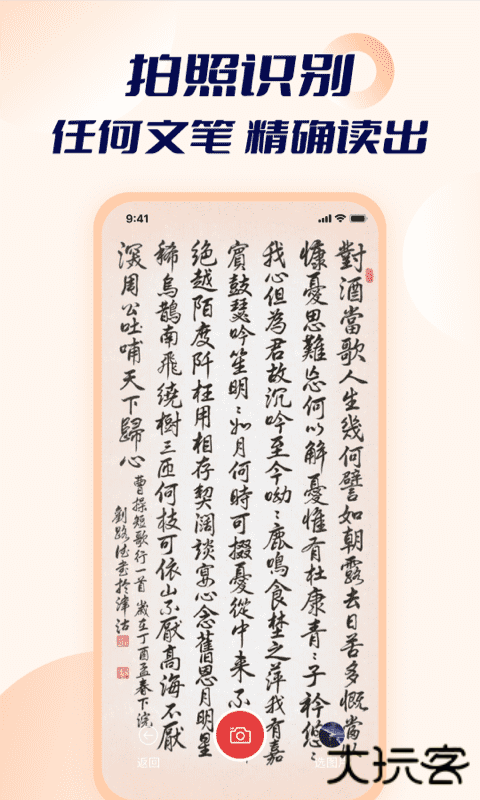 拍照识别
任何文笔 精确读出
9:41
對酒當歌人生幾何譬如朝露去日苦多慨當
慷憂思難忘何以解憂惟有杜康青〻子衿悠〻
我心但為君故沉吟至今呦〻鹿鳴食埜之萍我有嘉
賓鼓瑟吟笙明〻如月何時可掇憂從中來不
絕越陌度阡枉用相存契闊談宴心念舊恩月明星
稀烏鵲南飛繞樹三匝何枝可依山不厭高海不厭
深周公吐哺天下歸心
曹操短歌行一首 歲在丁酉孟春下浣
劉路德书於津沽
返回
选图
大玩客